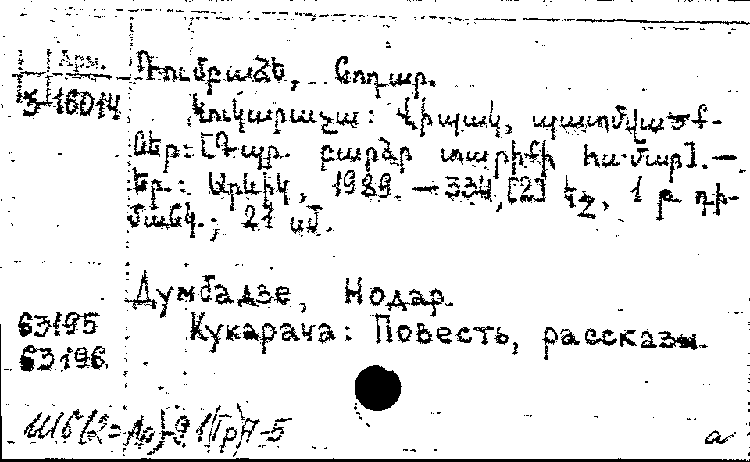 Арм.
3-16014
Դումբաձե, Նոդար.
Կուկարաչա: Վիպակ, պատմվածք-
ներ: [Դպր. բարձր տարիքի համար]. —
Եր.: Արևիկ, 1989. — 334, [2] եջ, 1 թ. դի-
ման.; 21 սմ.
Думбадзе, Нодар.
63195
Кукарача: Повесть, рассказы.
63196
Ш6(2=Ар)-9 1(Гр)7-5
а